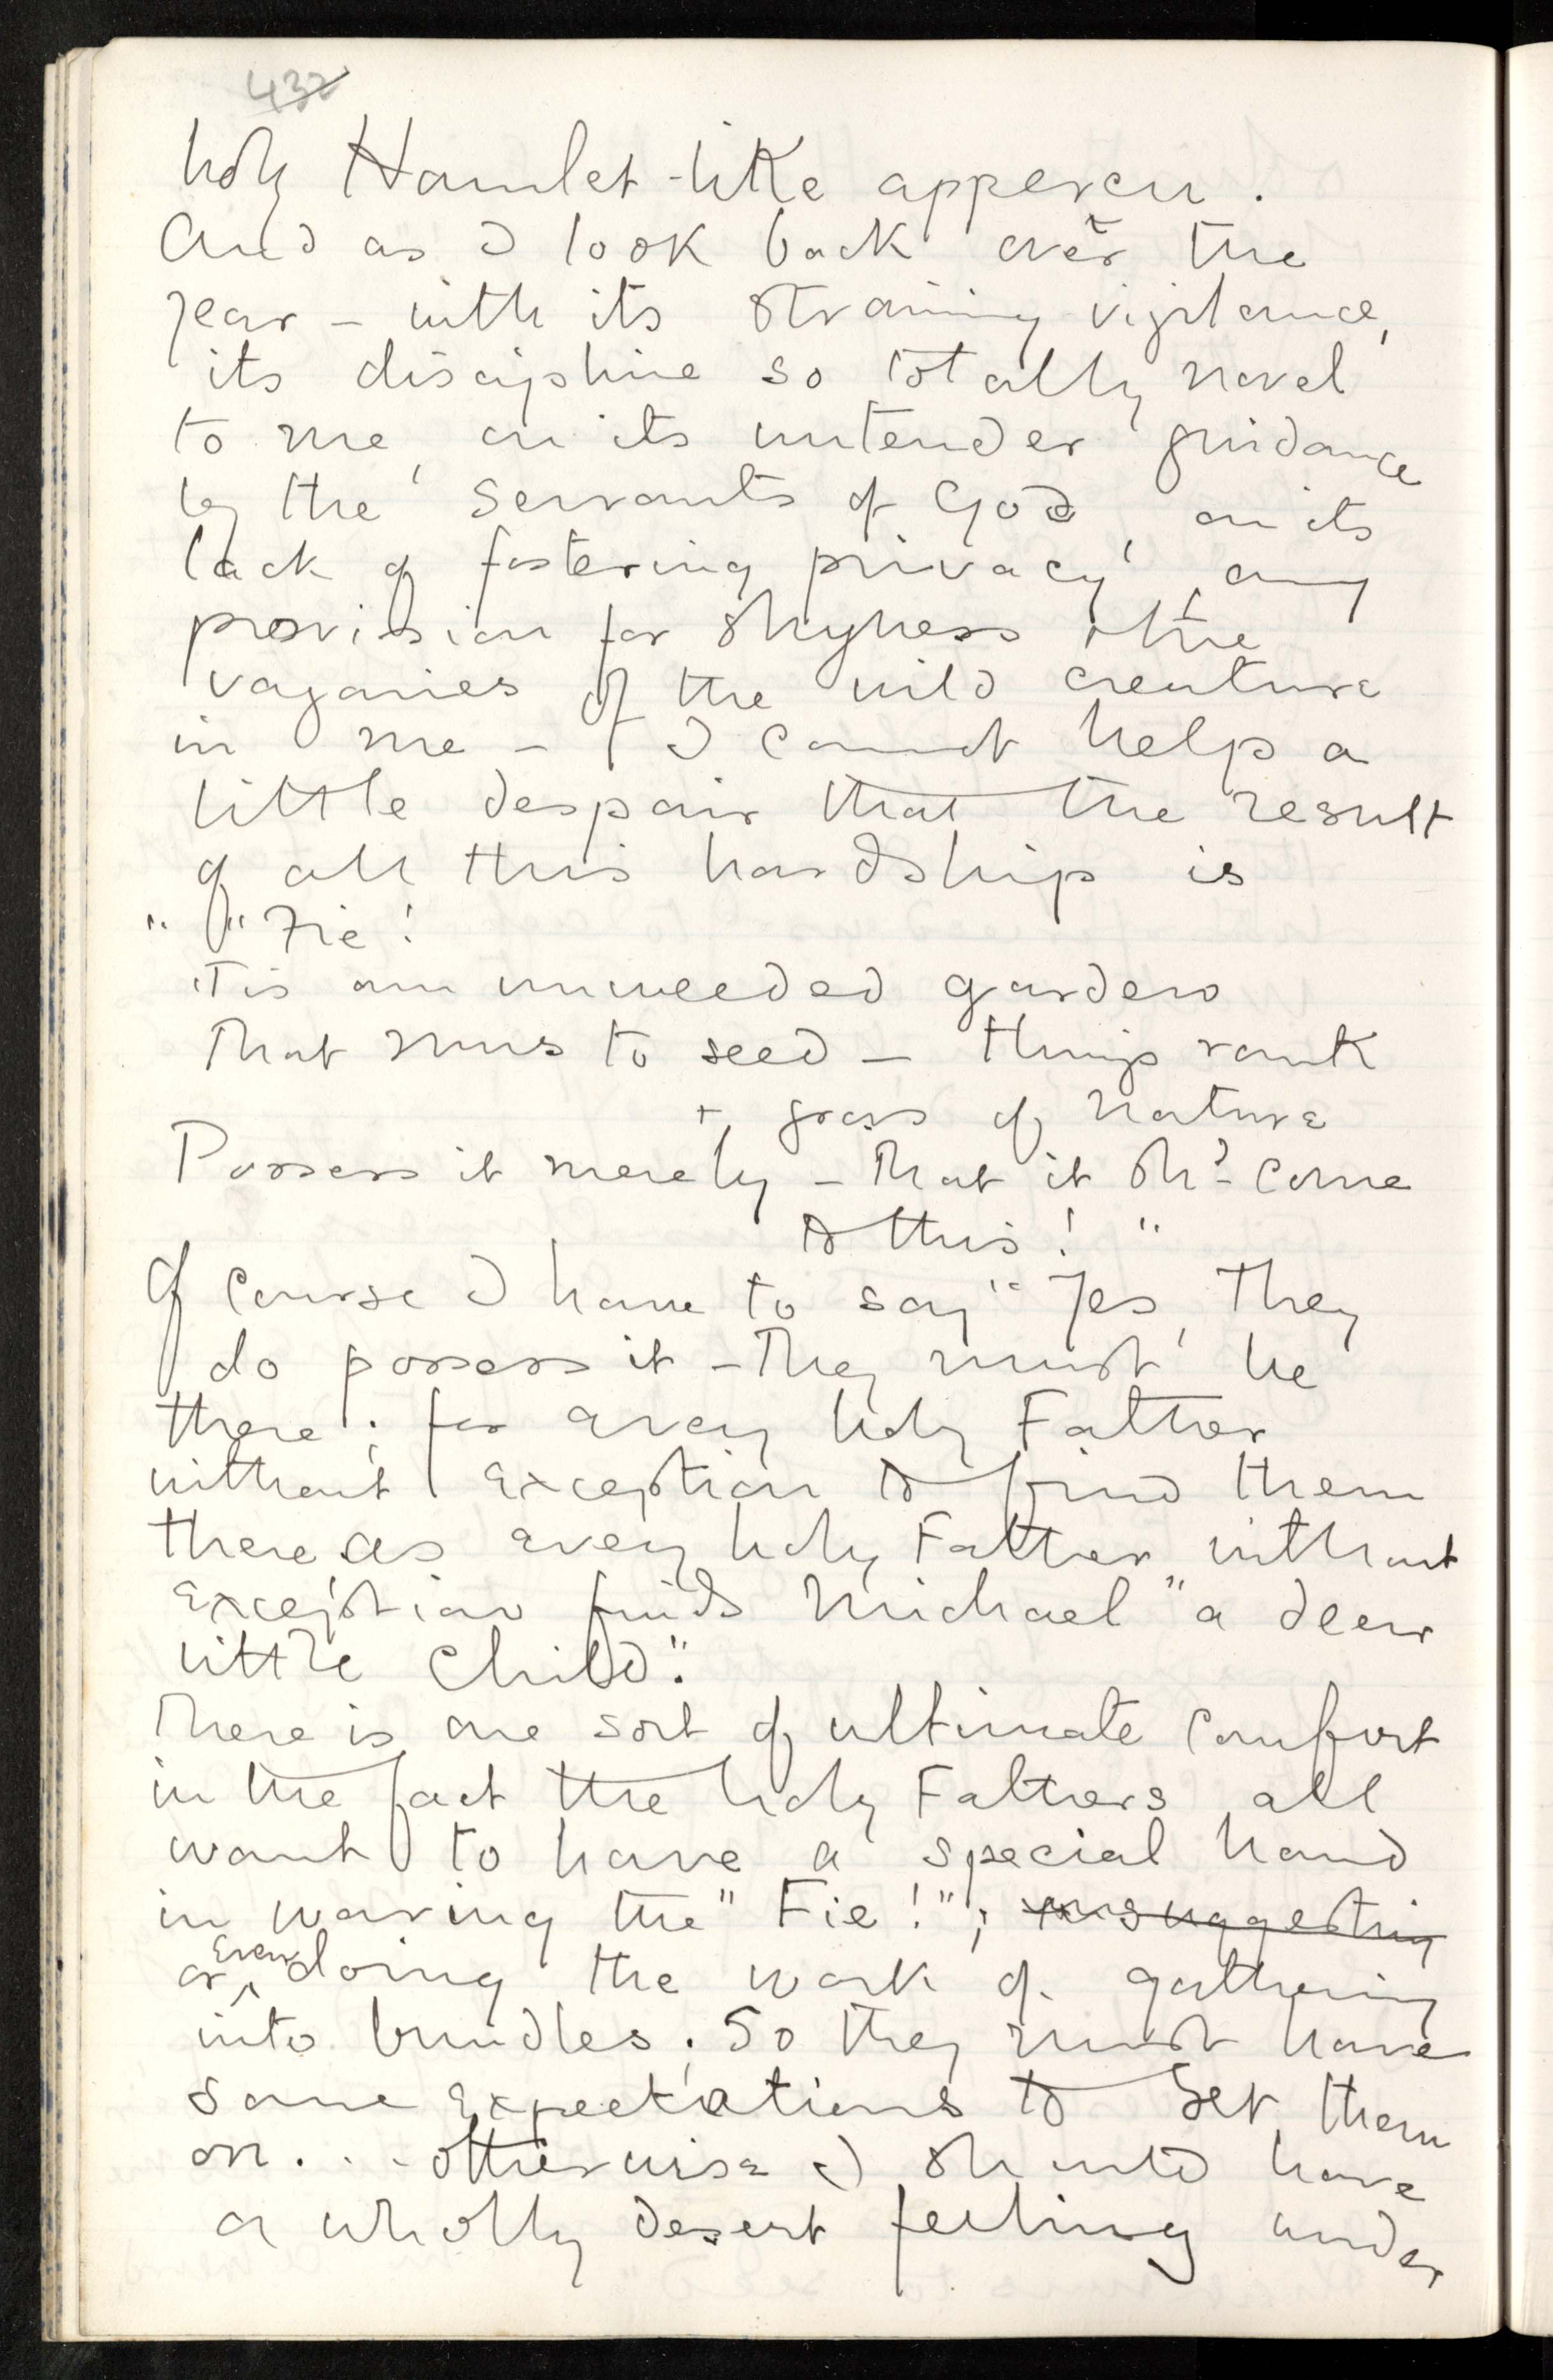 432
holy Hamlet-like apperçu.
And as I look back over the
year – with its straining vigilance,
its discipline so totally novel
to me, on its untender guidance
by the servants of God, on its
lack of fostering privacy, any
provision for shyness & the
vagaries of the wild creature
in me – I cannot help a
little despair that the result
of all this hardship is
" "Fie!
'Tis an unweeded garden
That runs to seed – things rank
+ gross of nature
Possess it merely – That it shd come
to this! "
Of course I have to say "Yes, they
do possess it – They must be
there; for every holy Father
without exception to find them
there as every holy Father without
exception finds Michael "a dear
little child."
There is one sort of ultimate comfort
in the fact the holy Fathers all
want to have a special hand
in waving the "Fie!"; suggesting
or even doing the work of gathering
into bundles; So they must have
some expectations to set them
on... otherwise I should have
a wholly desert feeling under